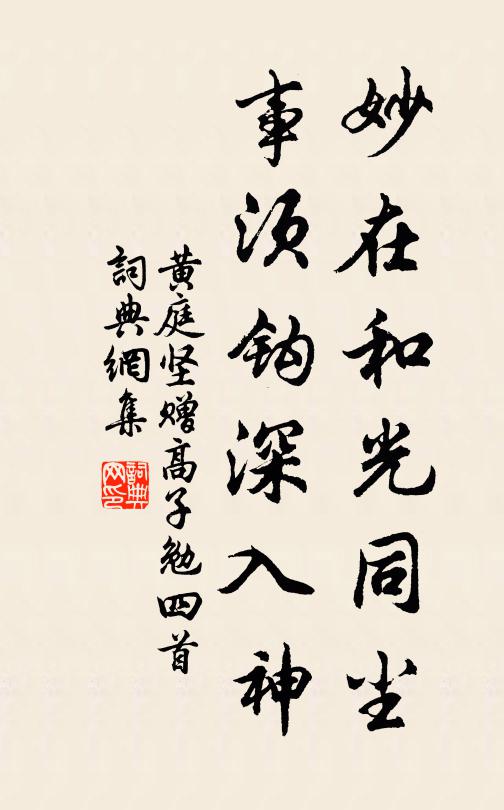 妙在和光同尘
事须钩深入神
黄庭坚赠高子勉四首
詞典網集
詞典
网印